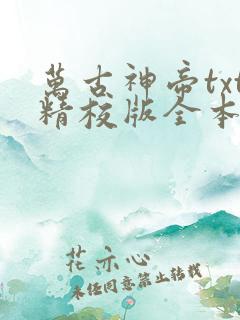 萬古神帝txt
精校版全本
花亦心
未经同意禁止转载